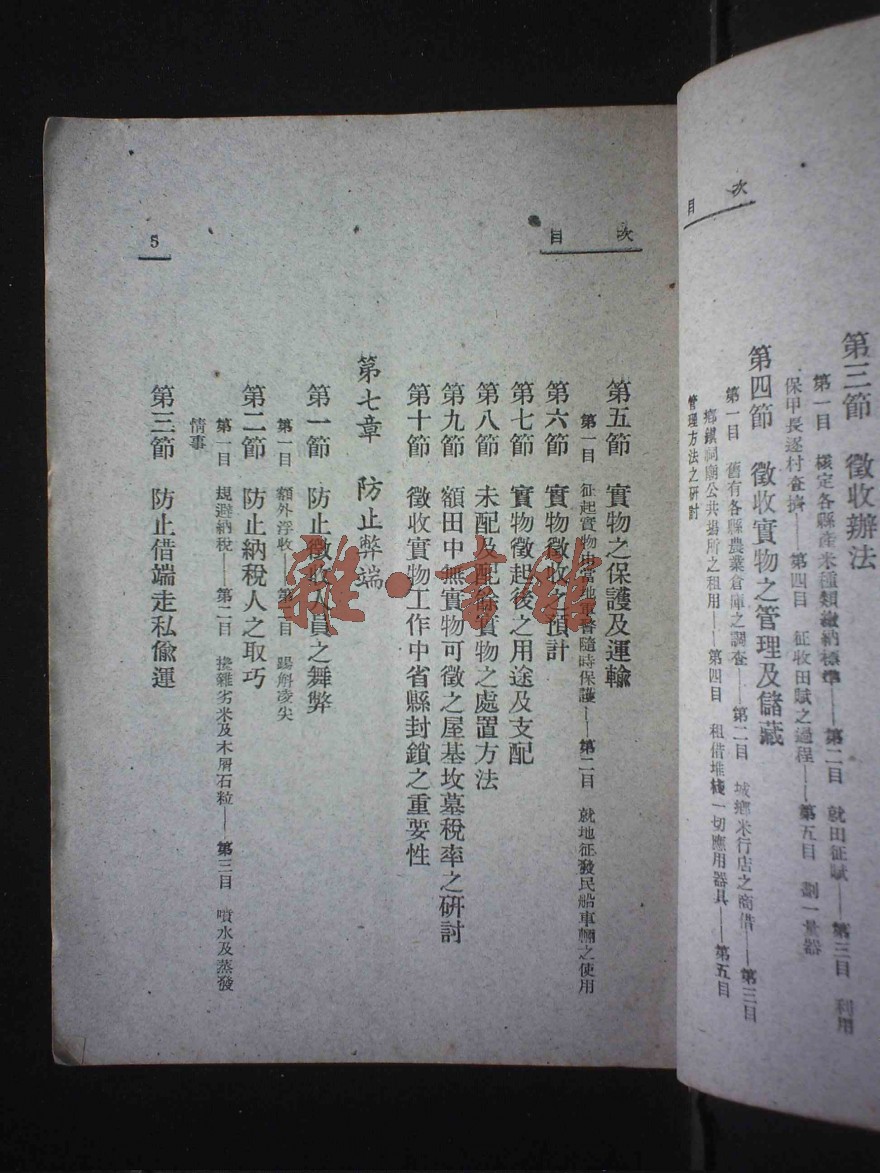 目次
第三節　徵收辦法
第一目　樣定各縣產米種類繳納標準——第二目　就田征賦——第三目　利用
保甲長逐村查擠——第四目　征收田賦之過程——第五目　劃一量器
第四節　徵收實物之管理及儲藏
第一目　舊有各縣農業倉庫之調查——第二目　城鄉米行店之商借——第三目
鄉鎮祠廟公共場所之租用——第四目　租借堆棧一切應用器具——第五目
管理方法之研討
目次
第五節　實物之保護及運輸
第一目　征起實物由當地軍警隨時保護——第二目　就地征發民船車輛之使用
第六節　實物徵收之預計
第七節　實物徵起後之用途及支配
第八節　未配及配餘實物之處置方法
第九節　額田中無實物可徵之屋基坟墓稅率之研討
第十節　徵收實物工作中省縣封鎖之重要性
第七章　防止弊端
第一節　防止徵收人員之舞弊
第一目　額外浮收——第二目　踢斛凌尖
第二節　防止納稅人之取巧
第一目　規避納稅——第二目　攙雜劣米及木屑石粒——第三目　噴水及蒸發
情事
第三節　防止借端走私偸運
5
雜·書館